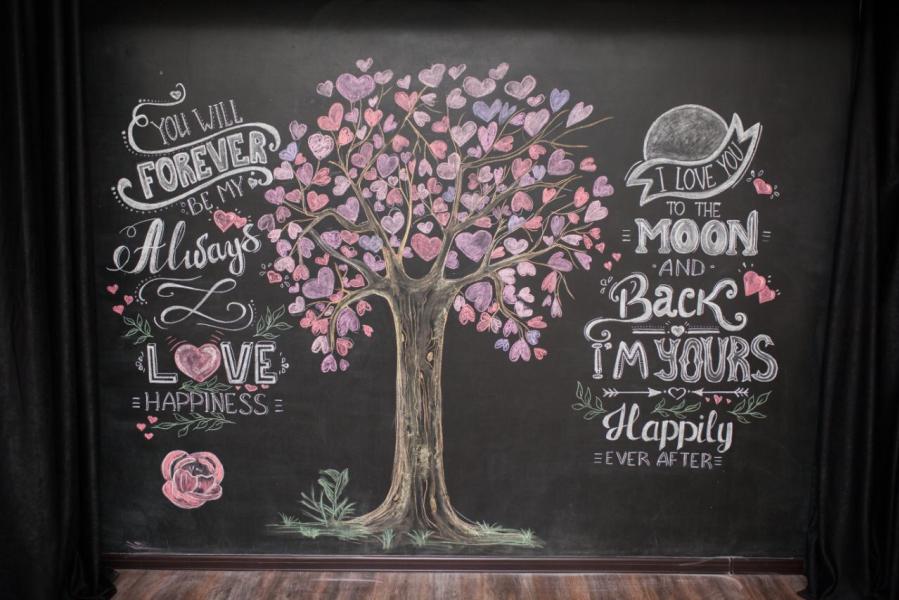 YOU WILL
FOREVER
BE MY
Always
LOVE
HAPPINESS
I LOVE YOU
TO THE
MOON
AND
Back
I'M YOURS
Happily
EVER AFTER